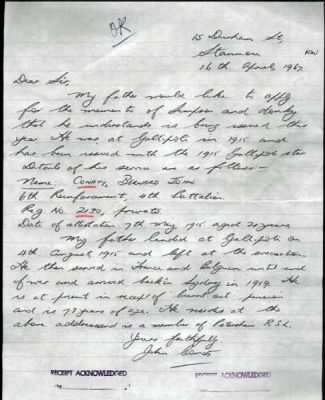 OK
15 Durham St,
Stanmore NSW
16th April, 1967.
Dear Sir,
My father would like to apply
for the memento of Anzac and
that he understands is being issued this
year. He was at Gallipoli in 1915 and
has been issued with the 1915 Gallipoli star
Details of his service are as follows:-
Name: CONATY, BERNARD JOHN
6th Reinforcement, 4th Battalion
Reg No. 2130, private.
Date of attestation 7th May 1915 aged 21 years
My father landed at Gallipoli on
4th August 1915 and left at the evacuation.
He then served in France and Belgium until end
of war and arrived back in Sydney in 1919. He
is at present in receipt of burnt out pension
and is 73 years of age. He resides at the
above address and is a member of Petersham R.S.L.
Yours faithfully
John Conaty
RECEIPT ACKNOWLEDGED
RECEIPT ACKNOWLEDGED